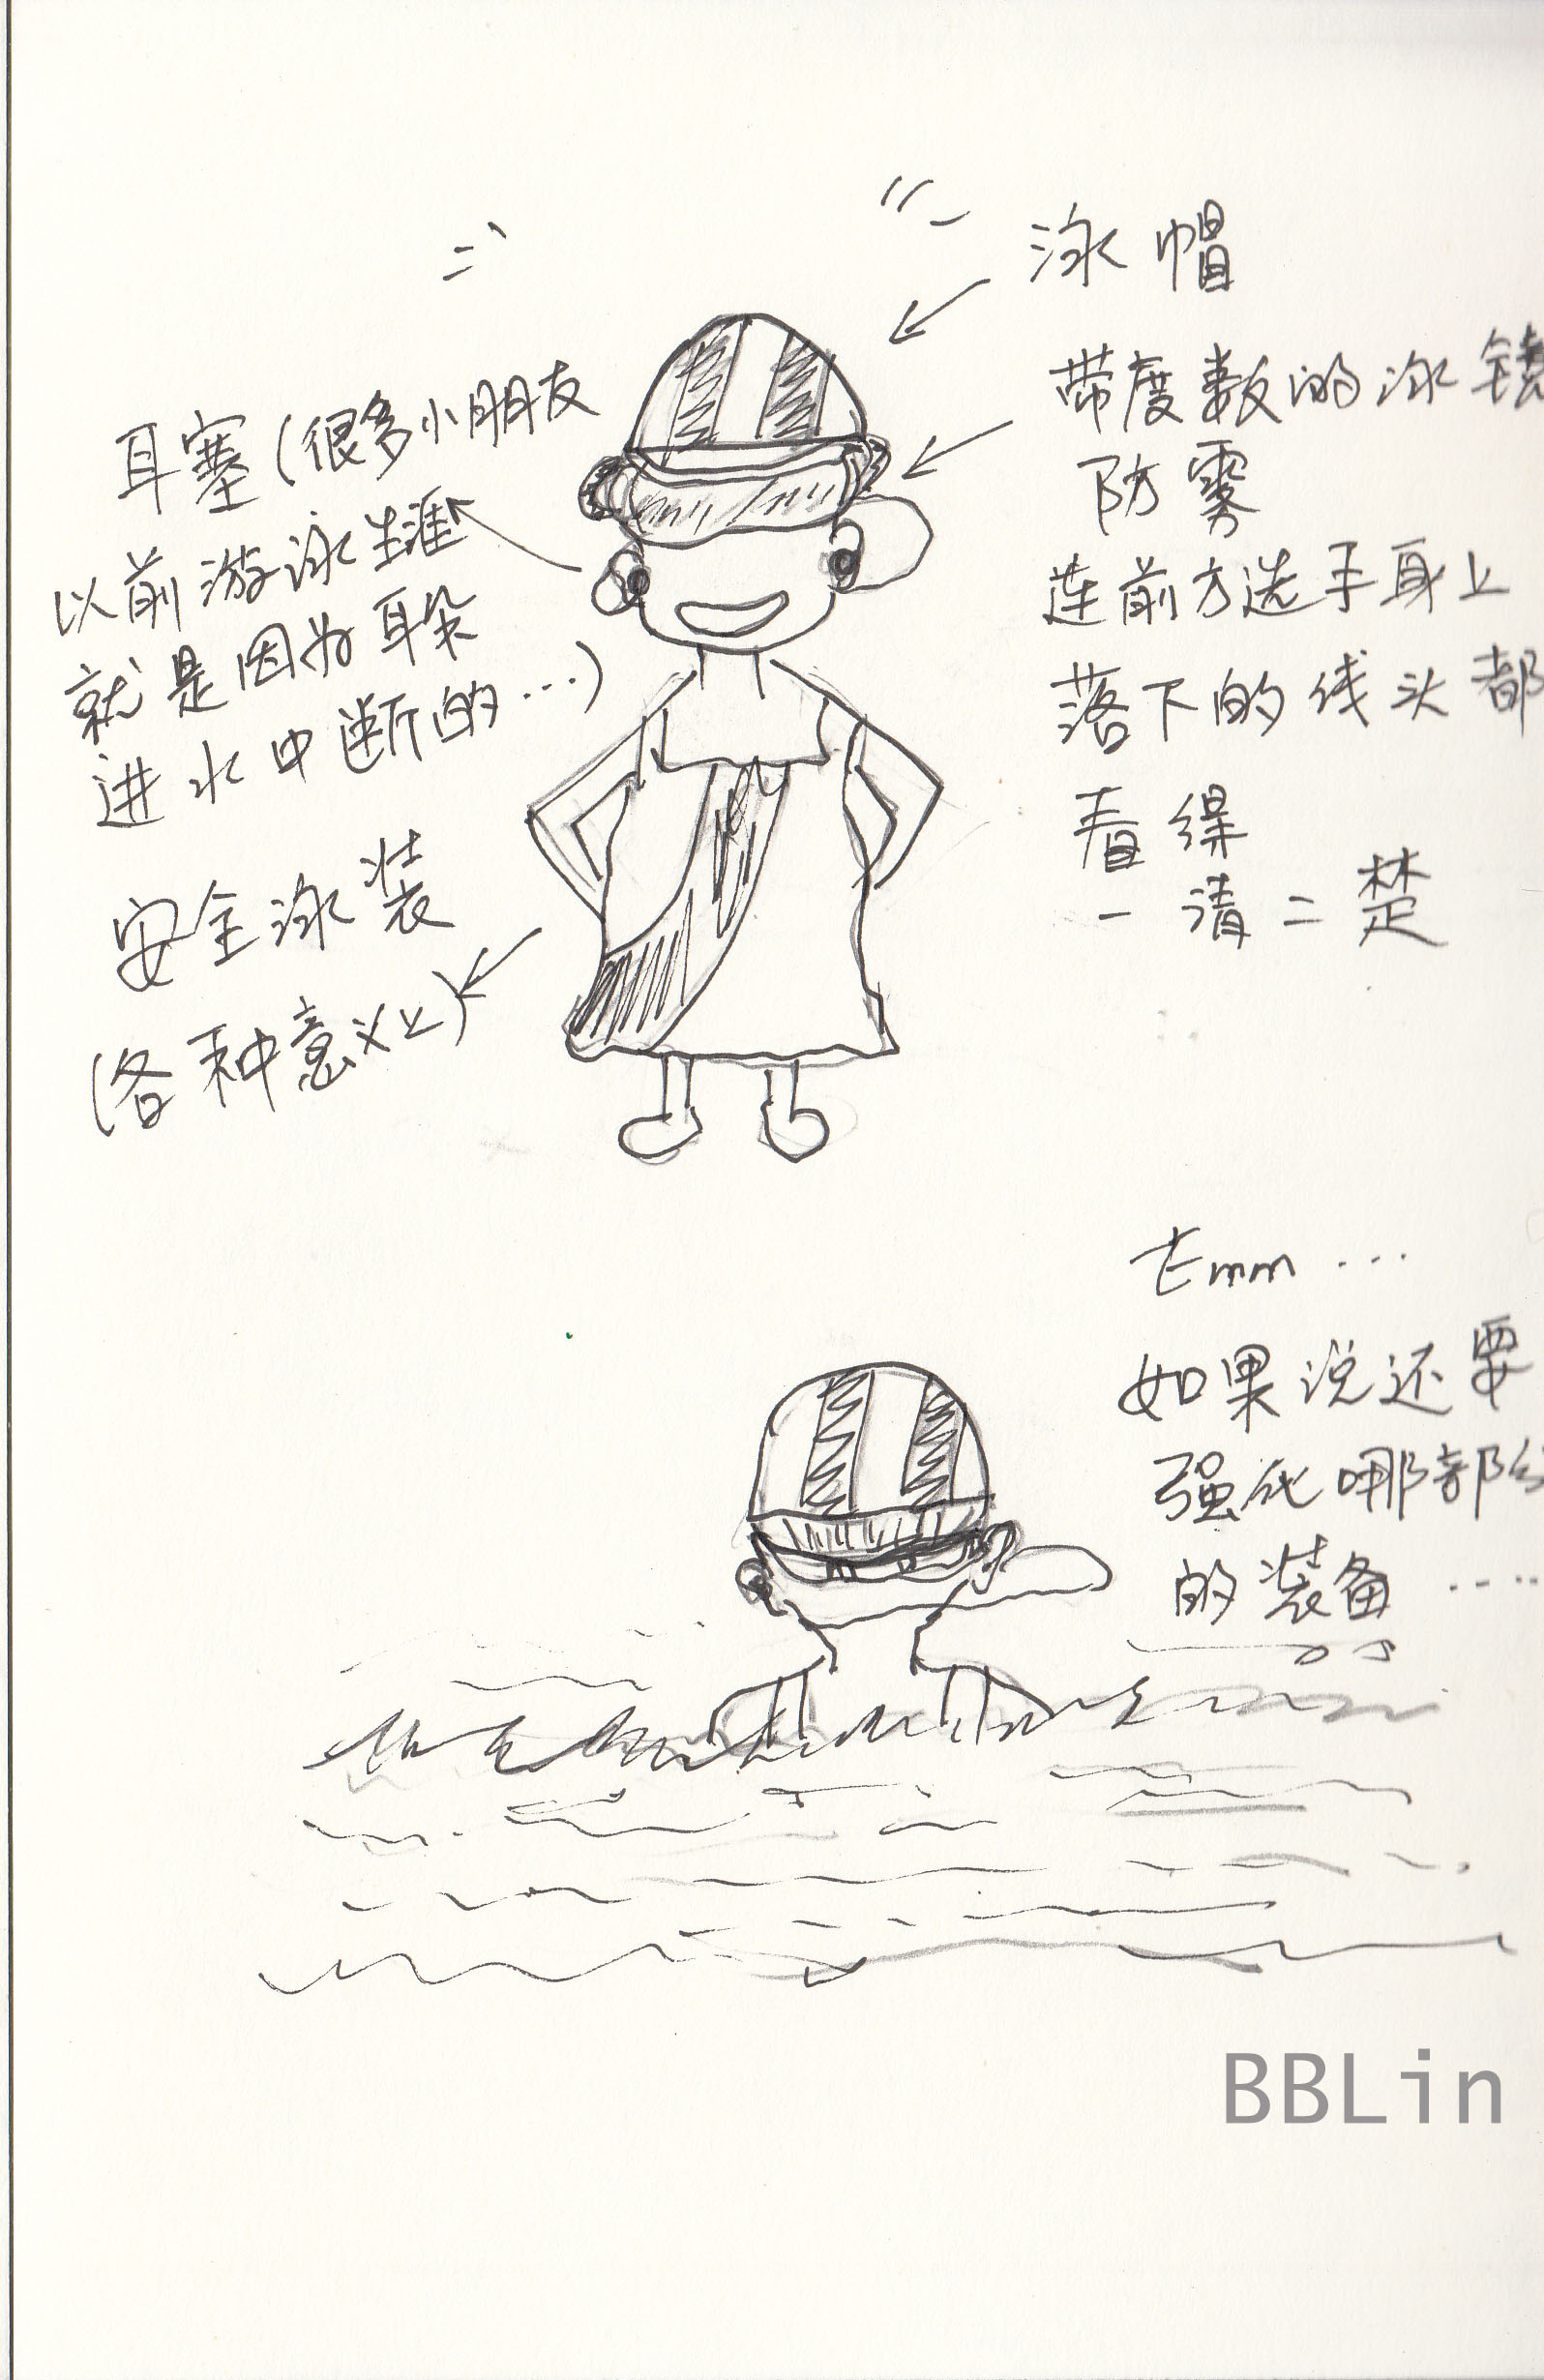 泳帽
带度数的泳镜
防雾
连前方选手身上
落下的线头都
看得
一清二楚
耳塞(很多小朋友
以前游泳生涯
就是因为耳朵
进水中断的…)
安全泳装
(各种意义上)
Emm…
如果说还要
强化哪部分
的装备……
BBLin